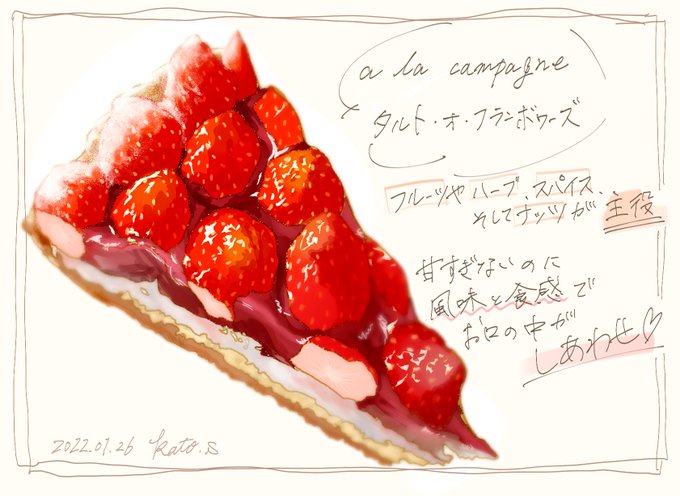 a la campagne
タルト・オ・フランボワーズ
フルーツやハーブ、スパイス、、
そしてナッツが主役
甘すぎないのに
風味と食感で
お口の中が
しあわせ♡
2022.01.26 kato.s